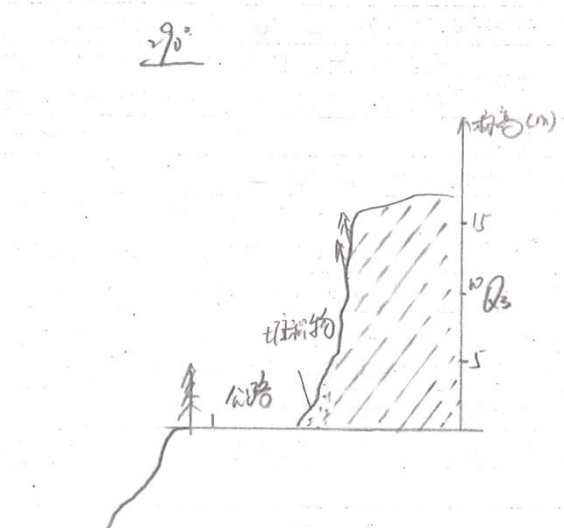 290°
标高(m)
15
10
Q₃
堆积物
5
公路